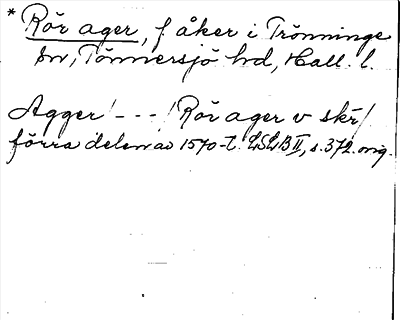 * Rör ager, f åker i Trönninge
sn, Tönnersjö hd, Hall. l.
Agger! - - - /Rör ager v skr/
förra delen av 1570-t. LSLB II, s. 372. orig.